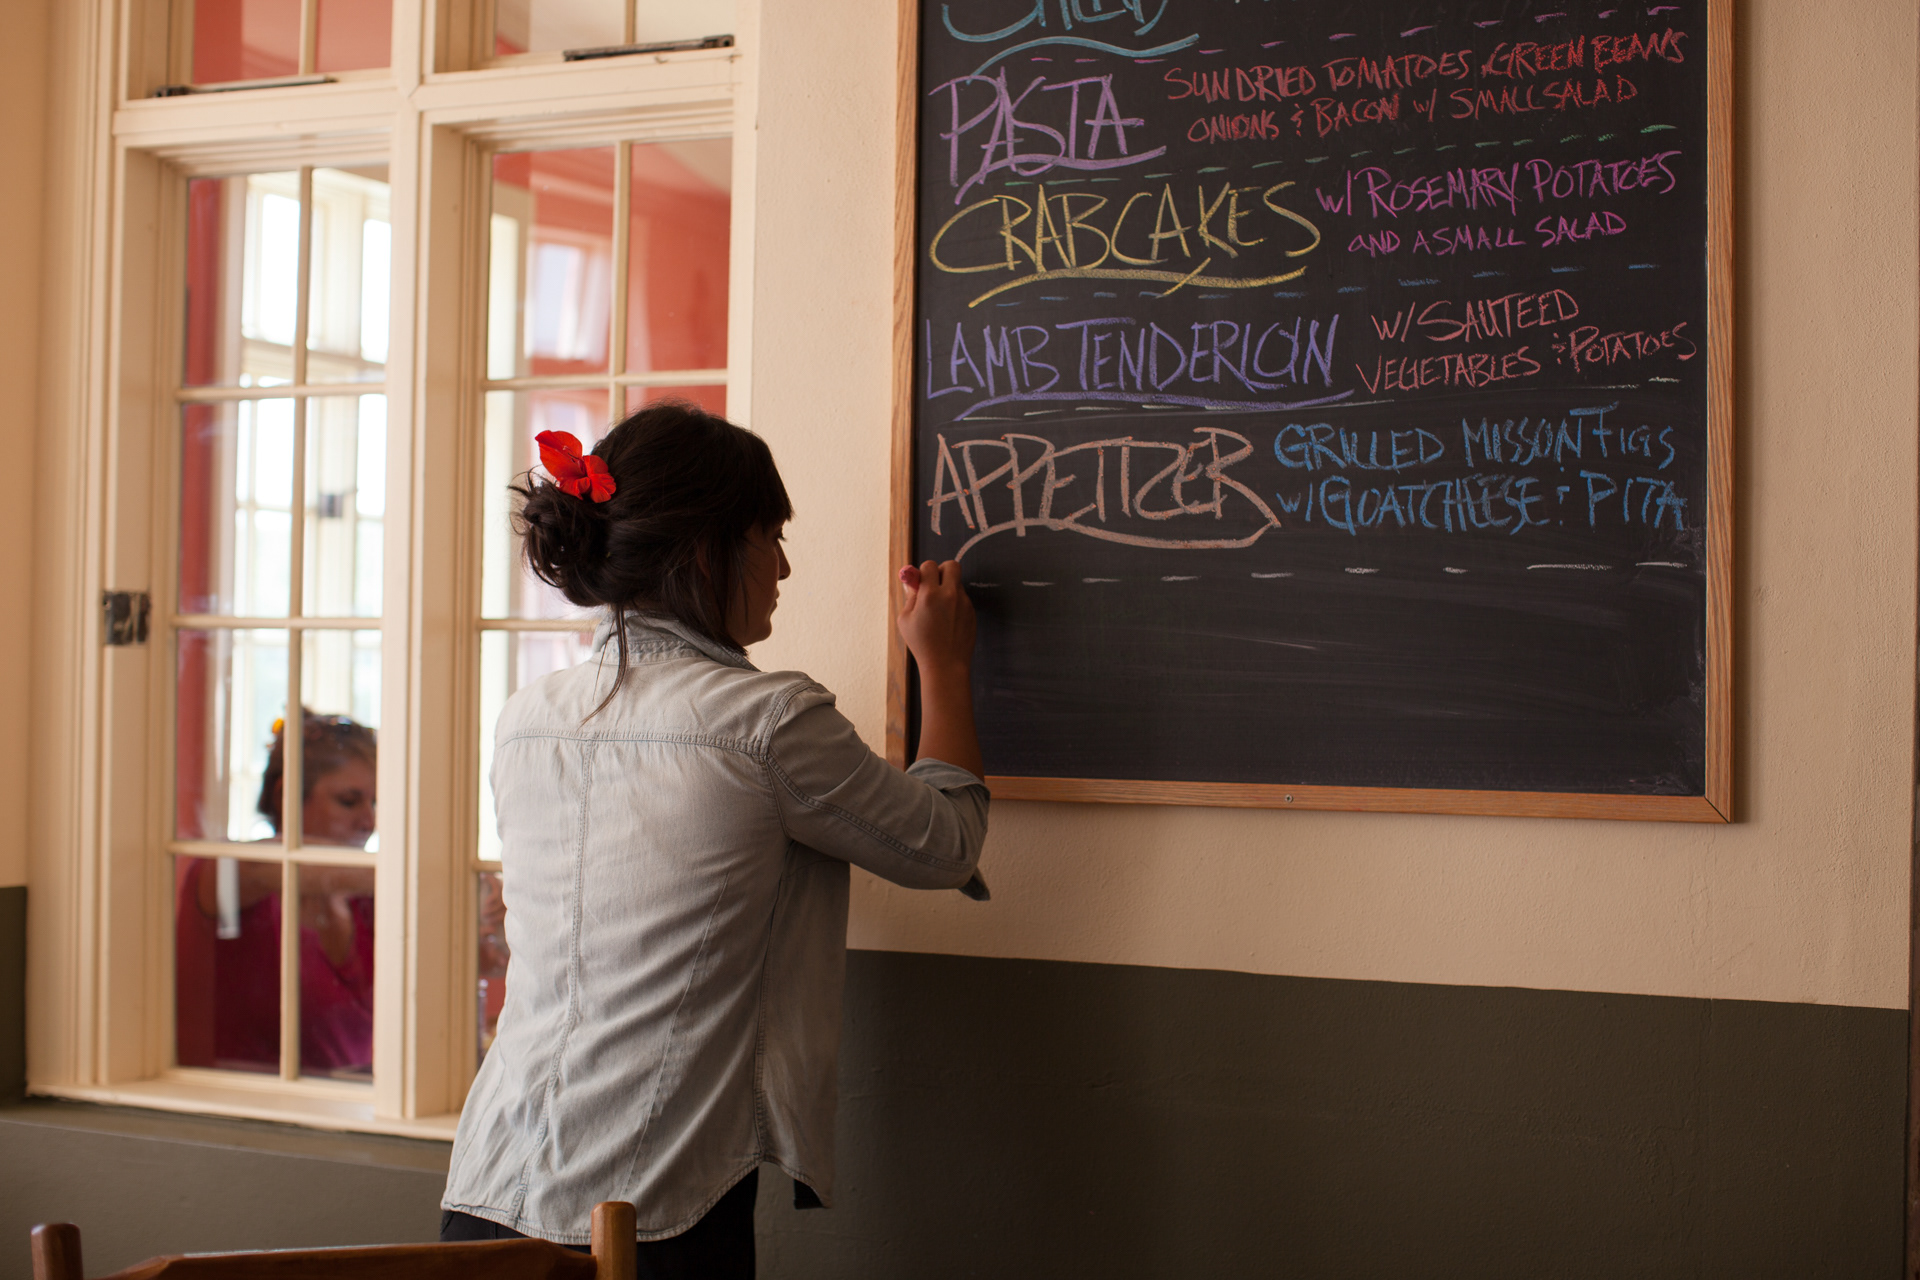 SALAD
PASTA SUNDRIED TOMATOES, GREEN BEANS
ONIONS & BACON w/ SMALL SALAD
CRABCAKES w/ ROSEMARY POTATOES
AND A SMALL SALAD
LAMB TENDERLOIN w/ SAUTEED
VEGETABLES & POTATOES
APPETIZER GRILLED MISSON FIGS
w/ GOAT CHEESE & PITA